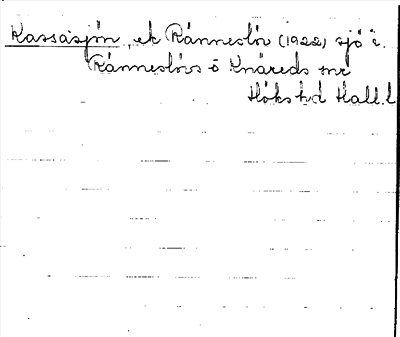 Kassasjön, ek Ränneslöv (1922) sjö i.
Ränneslövs o Knäreds snr
Höks hd Hall.l